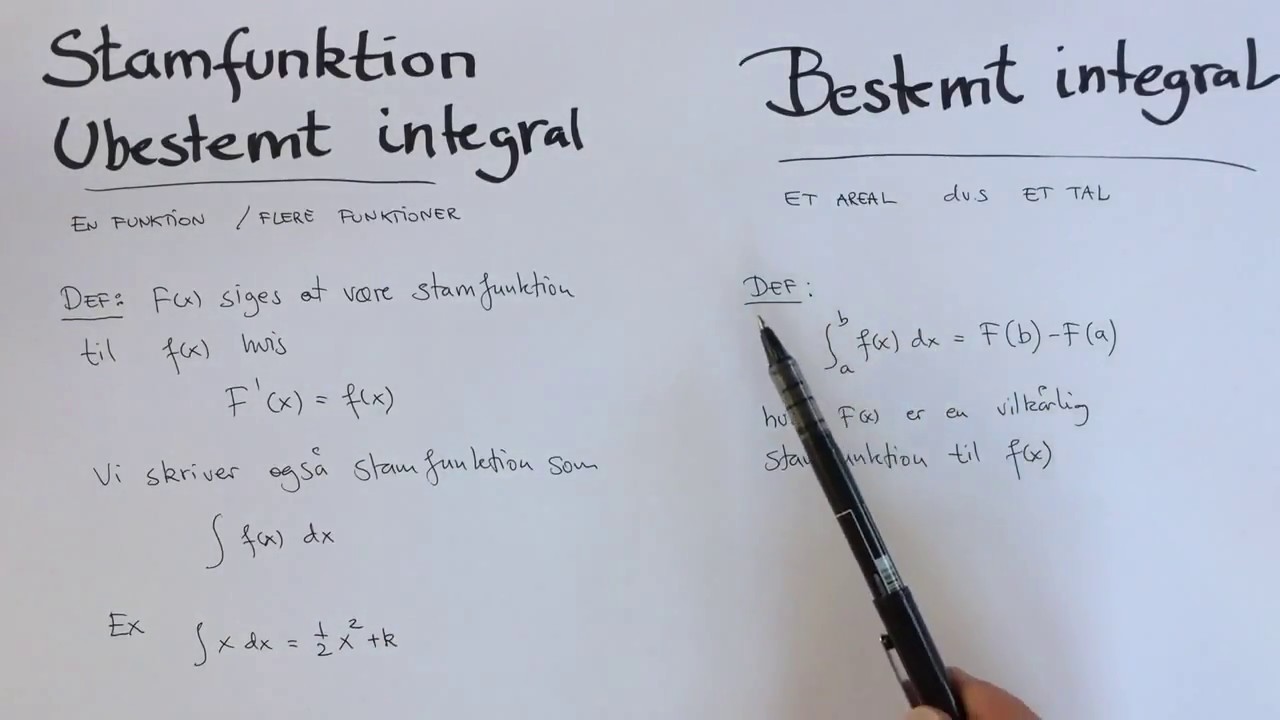 Stamfunktion
Ubestemt integral
EN FUNKTION / FLERE FUNKTIONER
DEF: F(x) siges at være stamfunktion
til f(x) hvis
F'(x) = f(x)
Vi skriver også stamfunktion som
∫ f(x) dx
Ex ∫ x dx = 1/2 x² + k
Bestemt integral
ET AREAL dvs ET TAL
DEF:
∫_a^b f(x) dx = F(b) - F(a)
F(x) er en vilkårlig
til f(x)